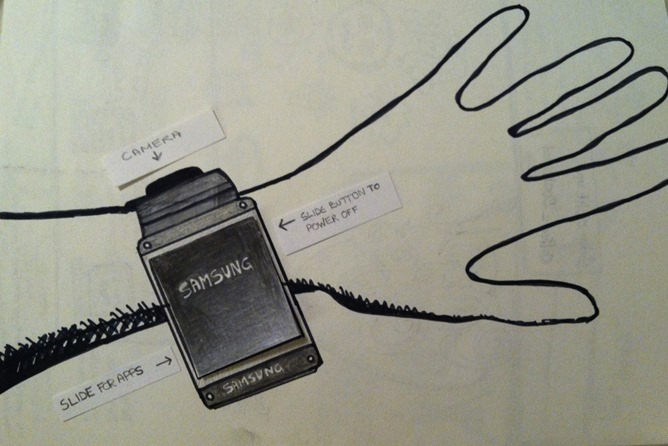 CAMERA
SLIDE BUTTON TO
POWER OFF
SAMSUNG
SLIDE FOR APPS
SAMSUNG